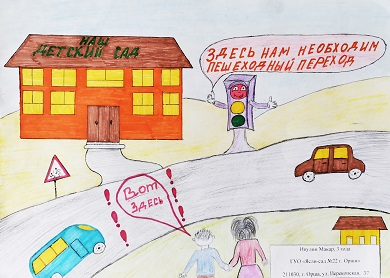 НАШ
ДЕТСКИЙ САД
ЗДЕСЬ НАМ НЕОБХОДИМ
ПЕШЕХОДНЫЙ ПЕРЕХОД
Вот
ЗДЕСЬ
Макар, 3 года
ГУО «Ясли-сад №22 г. Орши»
211030, г. Орша, ул. 37